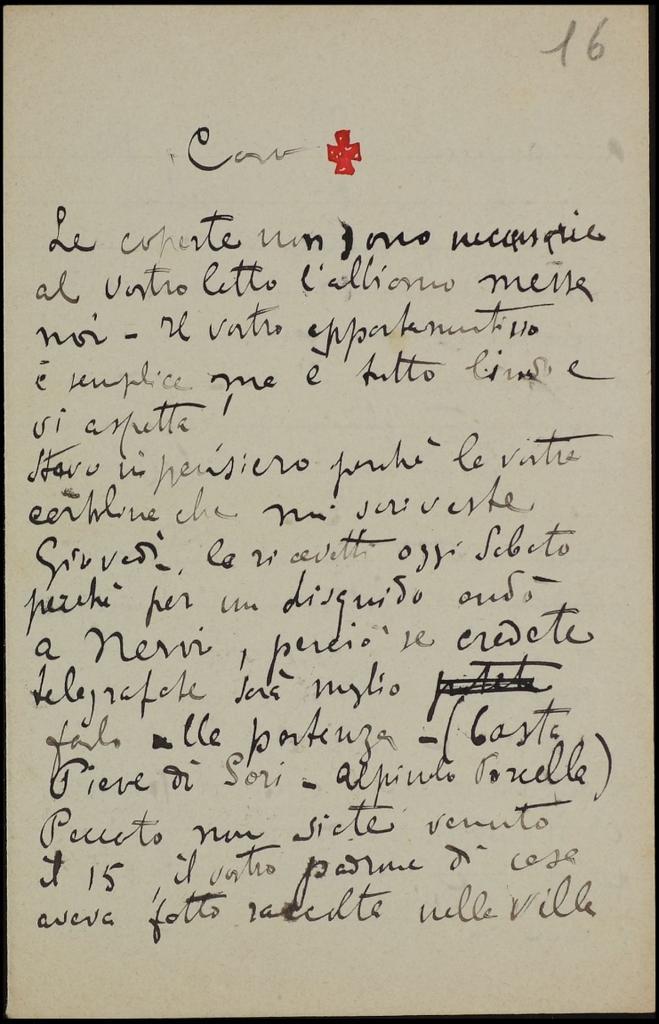 16
Caro
Le coperte non sono necessarie
al vostro letto l'abbiamo messe
noi - Il vostro appartamentino
è semplice ma è tutto lindo e
vi aspetta!
Stavo in pensiero perchè la vostra
cartolina che mi scriveste
Giovedì, la ricevetti oggi Sabato
perchè per un disguido andò
a Nervi, perciò se credete
telegrafate sarà meglio
farlo alla partenza - (basta
Pieve di Sori - Alpinolo Porcella)
Peccato non siate venuto
il 15, il vostro padrone di casa
aveva fatto raccolta nella villa